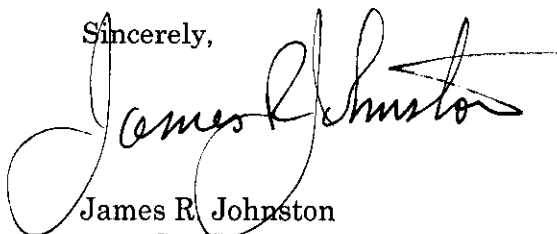 Sincerely,
James R Johnston
James R. Johnston